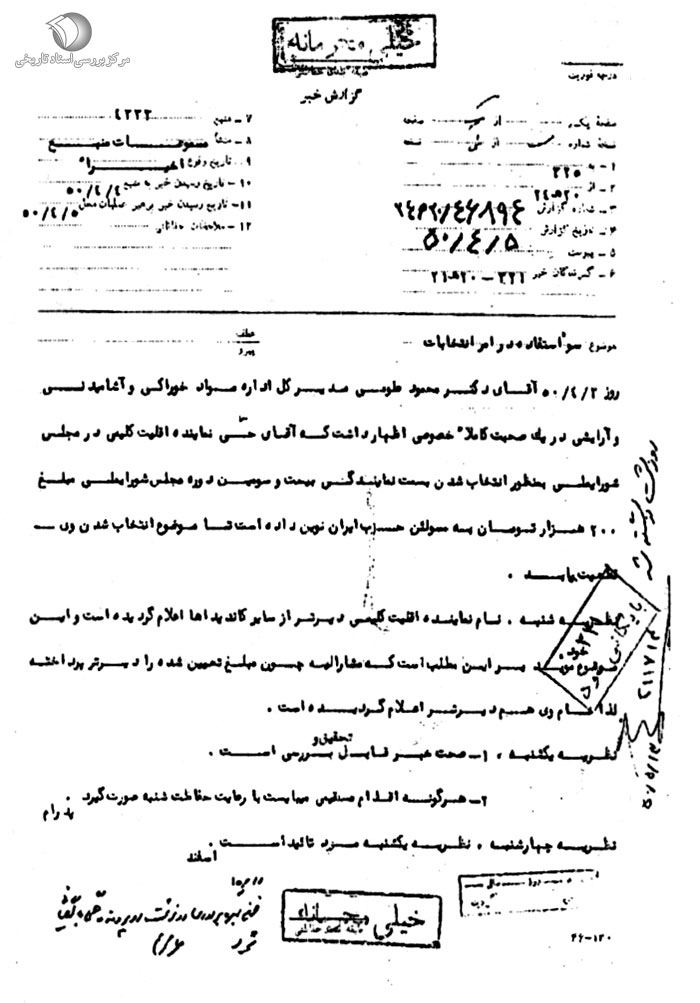 مرکز بررسی اسناد تاریخی
خیلی محرمانه
درجه فوریت
گزارش خبر
صفحهٔ یک از صفحه
نسخهٔ شماره از نسخه
۱ – به ۳۲۵
۲ – از ۲۰ ه‍ ۲۴
۳ – شماره گزارش ۲۴ه‍۲۰/۴۶۸۹۴
۴ – تاریخ گزارش ۵۰/۴/۵
۵ – پیوست
۶ – گیرندگان خبر ۳۲۱ – ۲۰ ه‍ ۲۱
۷ – منبع ۴۲۳۳
۸ – منشأ مسموعات منبع
۹ – تاریخ وقوع اخیراً
۱۰ – تاریخ رسیدن خبر به منبع ۵۰/۴/۴
۱۱ – تاریخ رسیدن خبر برهبر عملیات محل ۵۰/۴/۵
۱۲ – ملاحظات حفاظتی
موضوع سوء استفاده در امر انتخابات
عطف
پیرو
روز ۵۰/۴/۲ آقای دکتر محمود طوسی مدیر کل اداره مواد خوراکی و آشامیدنی
و آرایشی در یک صحبت کاملاً خصوصی اظهار داشت که آقای نماینده اقلیت کلیمی در مجلس
شورایملی بمنظور انتخاب شدن بسمت نمایندگی بیست و سومین دوره مجلس شورایملی مبلغ
۲۰۰ هزار تومان به مسئولین حزب ایران نوین داده است تا موضوع انتخاب شدن وی
قطعیت یابد .
نظریه شنبه . نام نماینده اقلیت کلیمی دیرتر از سایر کاندیداها اعلام گردیده است و این
موضوع بر این مطلب است که مشارالیه چون مبلغ تعیین شده را دیرتر پرداخته
لذا نام وی هم دیرتر اعلام گردیده است .
نظریه یکشنبه . ۱– صحت خبر قابل تحقیق و بررسی است .
۲– هرگونه اقدام مستقیم میبایست با رعایت حفاظت شنبه صورت گیرد
نظریه چهارشنبه . نظریه یکشنبه مورد تائید است .
بایگانی
۲۱۱۷۱۳
خیلی محرمانه
۴۶–۱۲۰